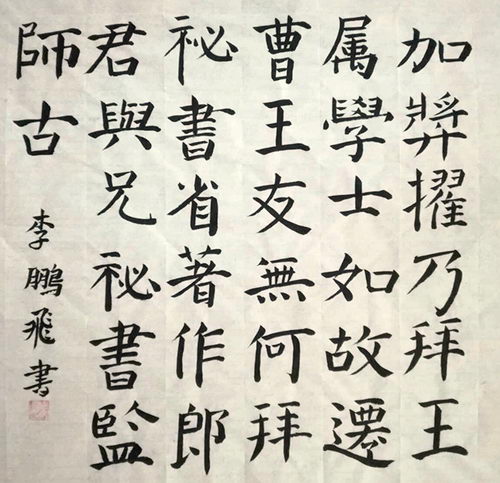 加奬擢乃拜王
属學士如故遷
曹王友無何拜
祕書省著作郎
君與兄祕書監
師古
李鵬飛書